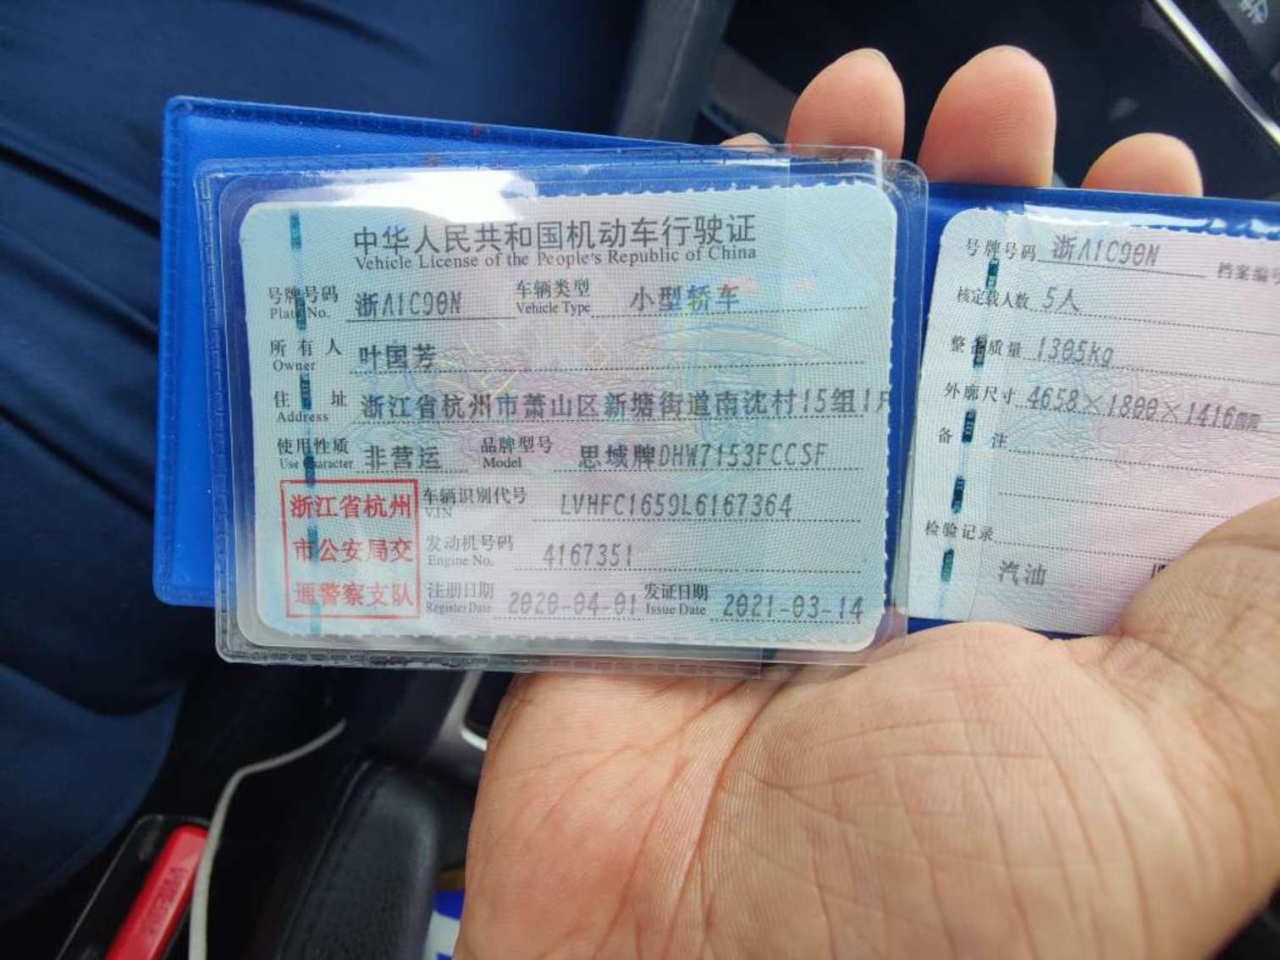 中华人民共和国机动车行驶证
Vehicle License of the People's Republic of China
号牌号码 浙A1C90N 车辆类型 小型轿车
Plate No. Vehicle Type
所有人 叶国芳
Owner
住址 浙江省杭州市萧山区新塘街道南沈村15组1
Address
使用性质 非营运 品牌型号 思域牌DHW7153FCCSF
Use Character Model
浙江省杭州
市公安局交
通警察支队
车辆识别代号 LVHFC1659L6167364
VIN
发动机号码 4167351
Engine No.
注册日期 2020-04-01 发证日期 2021-03-14
Register Date Issue Date
号牌号码 浙A1C90N 档案编号
核定载人数 5人
整备质量 1305kg
外廓尺寸 4658×1800×1416mm
备注
检验记录
汽油